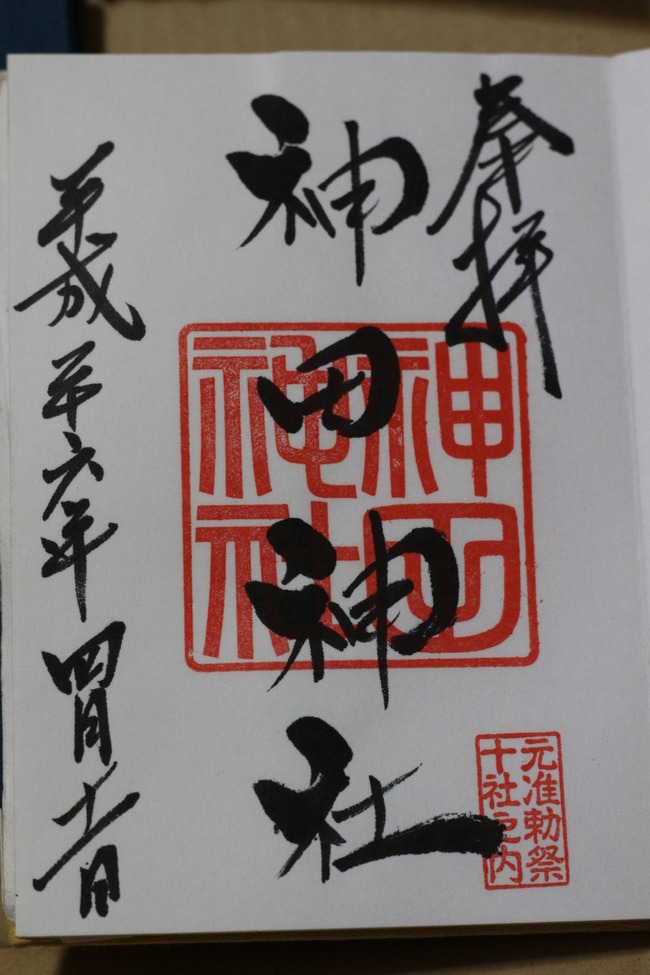 奉拝
神田神社
神田
神社
元准勅祭
十社之内
平成二十六年四月十一日